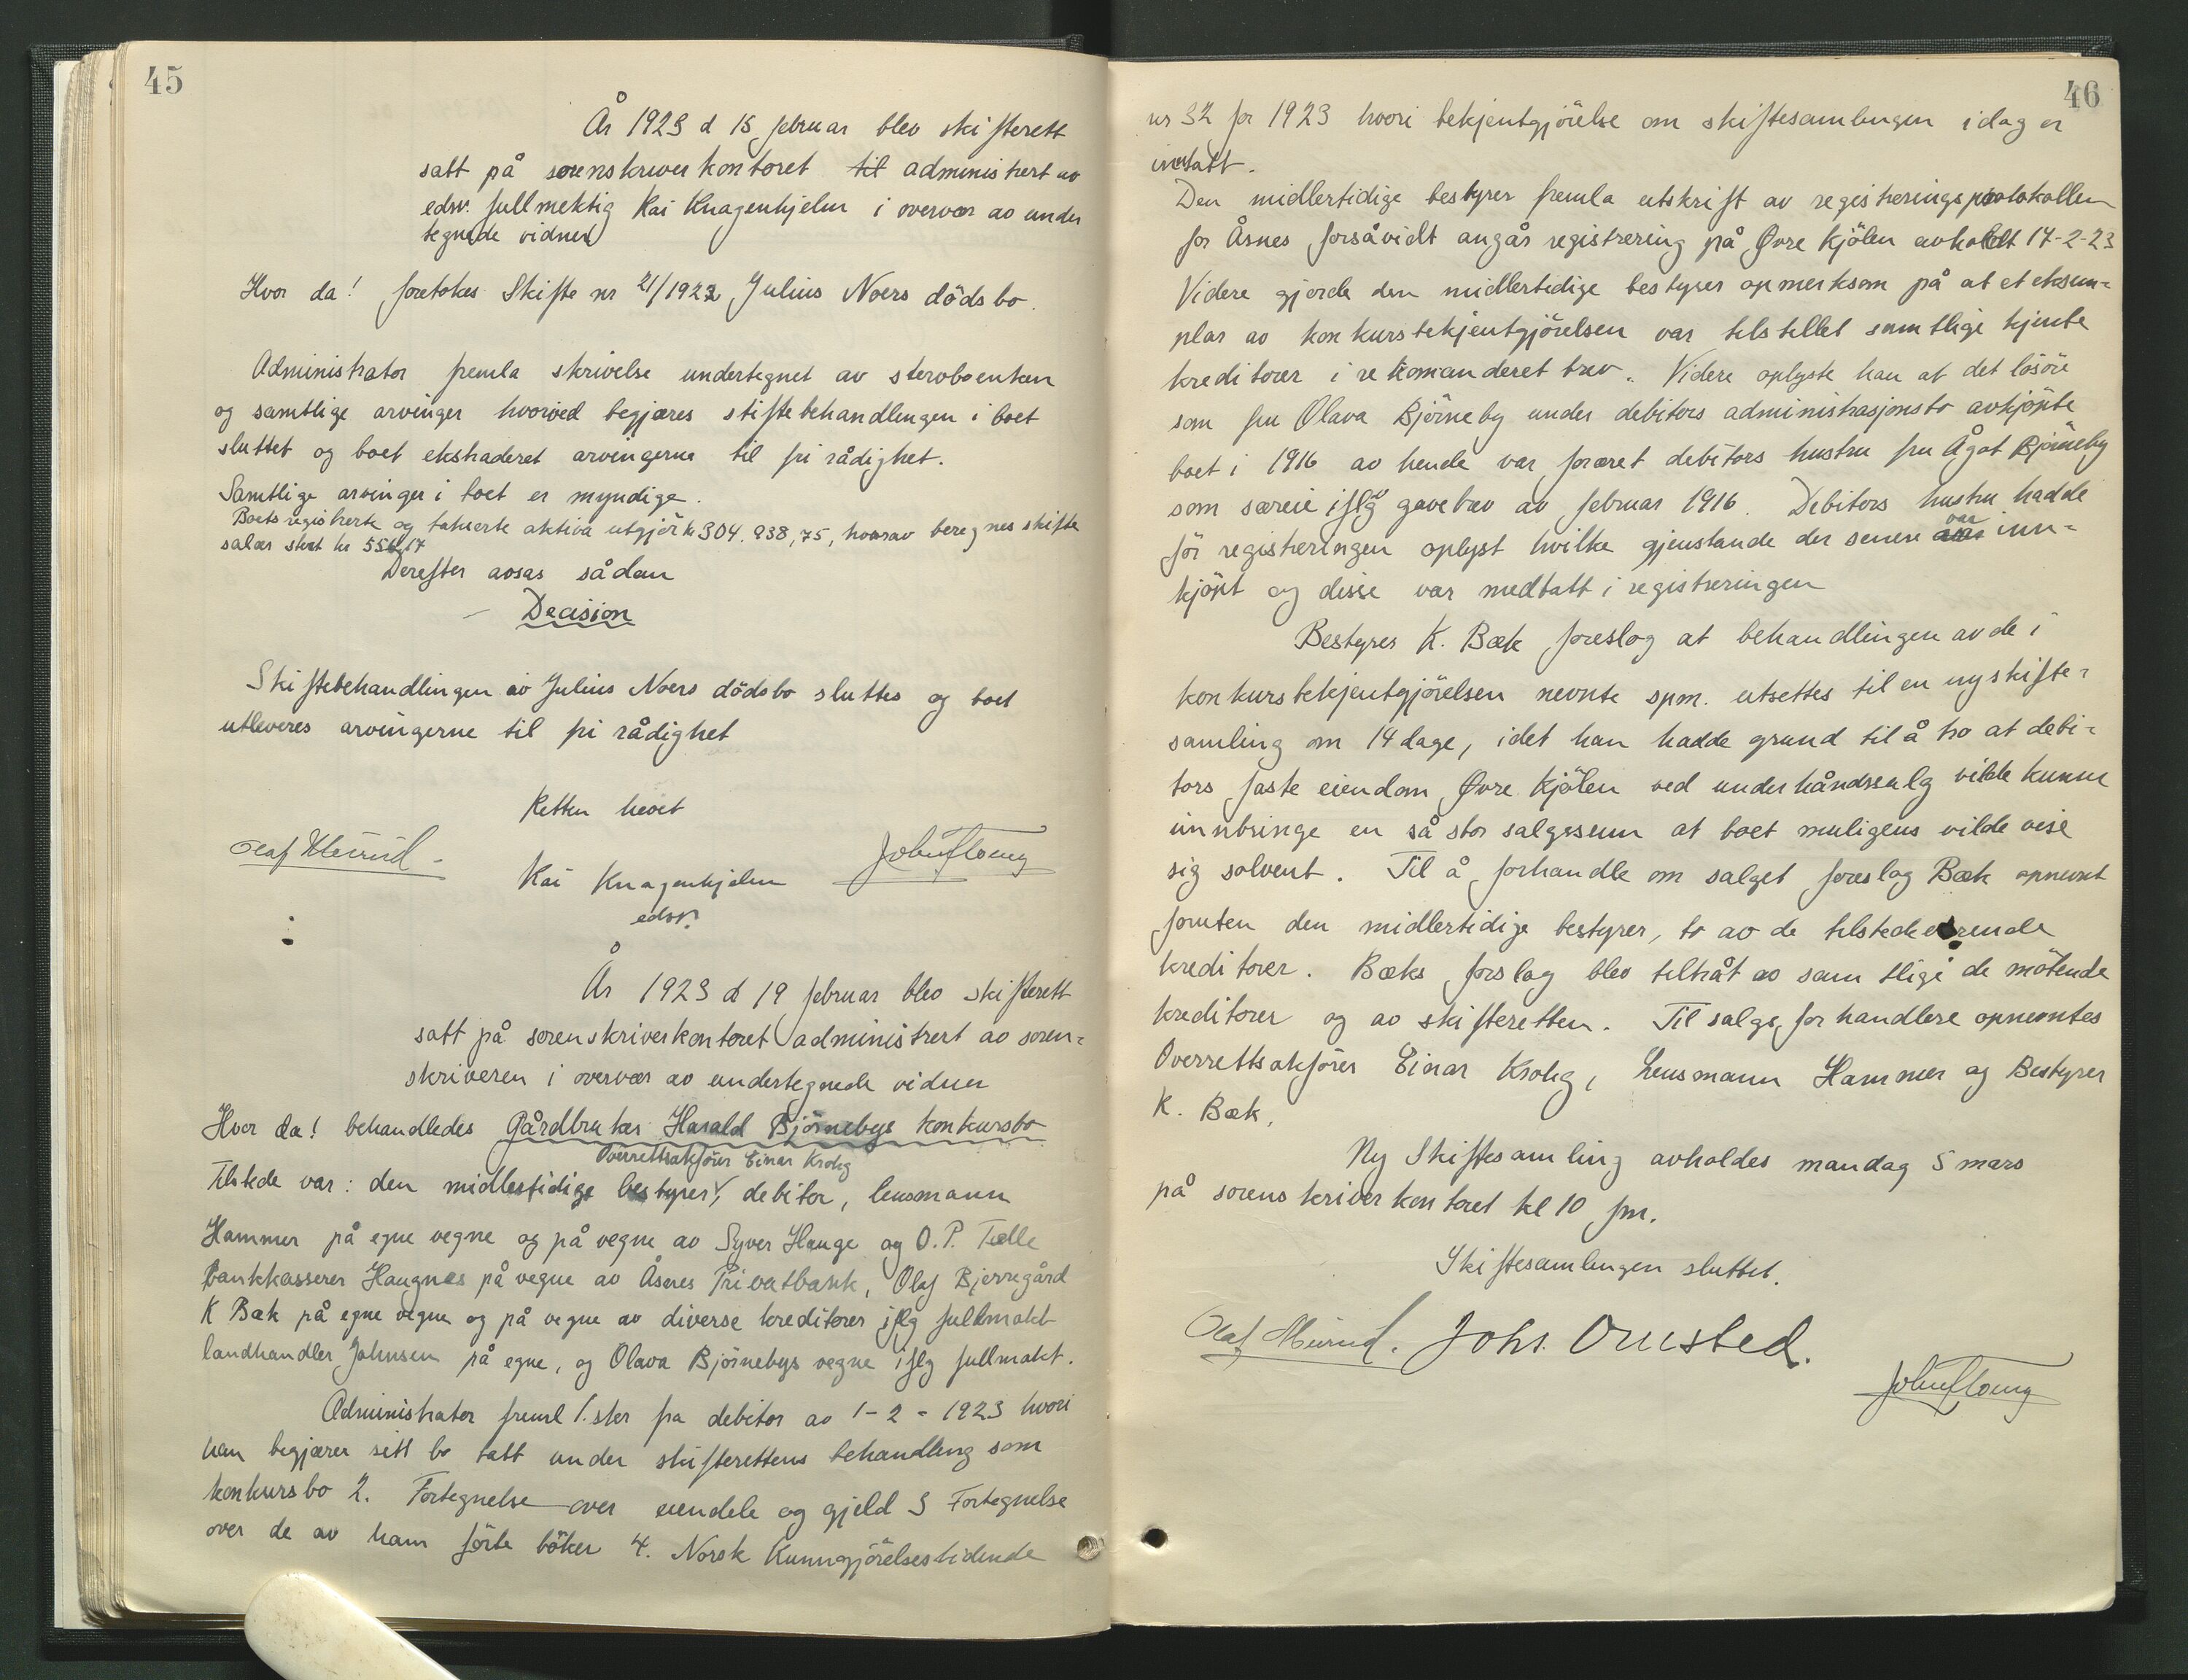 45
År 1923 d 15 februar blev skifterett
satt på sorenskriverkontoret til administrert av
edsv. fullmektig Kai Knagenhjelm i overvær av under
tegnede vidner
Hvor da! foretokes Skifte nr 21/1922 Julius Noers dödsbo.
Administrator fremla skrivelse undertegnet av stervboenken
og samtlige arvinger hvorved begjæres skiftebehandlingen i boet
sluttet og boet ekstraderet arvingerne til fri rådighet.
Samtlige arvinger i boet er myndige.
Boets registrerte og takserte aktiva utgjör kr 304.938,75, hvorav beregnes skifte
salær stort kr
Derefter avsas sådan
Decision
Skiftebehandlingen av Julius Noers dödsbo sluttes og boet
utleveres arvingerne til fri rådighet
Retten hevet
Olaf John
Kai Knagenhjelm
edsv.
År 1923 d 19 februar blev skifterett
satt på sorenskriverkontoret administrert av soren-
skriveren i overvær av undertegnede vidner
Hvor da! behandledes Gårdbruker Harald Björnebys konkursbo
Overrettsakförer Einar Krohg
Tilstede var: den midlertidige bestyrer, debitor, lensmann
Hammer på egne vegne og på vegne av Syver Hauge og O.P. Fælle
Bankkasserer Haugnes på vegne av Åsnes Privatbank, Olaf Bjerregård
K Bæk på egne vegne og på vegne av diverse kreditorer iflg fullmakt
landhandler Johnsen på egne, og Olava Björnebys vegne iflg fullmakt.
Administrator freml 1. skr fra debitor av 1-2-1923 hvori
han begjærer sitt bo tatt under skifterettens behandling som
konkursbo 2. Fortegnelse over eiendele og gjeld 3 Fortegnelse
over de av ham förte böker 4. Norsk Kunngjörelsestidende
46
nr 32 for 1923 hvori bekjentgjörelse om skiftesamlingen idag er
inntatt.
Den midlertidige bestyrer fremla utskrift av registreringsprotokollen
for Åsnes forsåvidt angår registrering på Øvre Kjölen avholdt 14-2-23
Videre gjorde den midlertidige bestyrer opmerksom på at et eksem-
plar av konkursbekjentgjörelsen var tilstillet samtlige kjente
kreditorer i rekomanderet brev. Videre oplyste han at det lösöre
som fru Olava Björneby under debitors administrasjonsbo avkjöpte
boet i 1916 av hende var foræret debitors hustru fru Ågot Björneby
som særeie iflg gavebrev av februar 1916. Debitors hustru hadde
för registreringen oplyst hvilke gjenstande der senere var inn-
kjöpt og disse var medtatt i registreringen
Bestyrer K. Bæk foreslog at behandlingen av de i
konkursbekjentgjörelsen nevnte spm. utsettes til en ny skifte-
samling om 14 dage, idet han hadde grund til å tro at debi-
tors faste eiendom Øvre Kjölen ved underhåndssalg vilde kunne
innbringe en så stor salgssum at boet muligens vilde vise
sig solvent. Til å forhandle om salget foreslog Bæk opnevnt
foruten den midlertidige bestyrer, to av de tilstedeværende
kreditorer. Bæks forslag blev tiltrådt av samtlige de mötende
kreditorer og av skifteretten. Til salgsforhandlere opnevntes
Overrettsakförer Einar Krohg, Lensmann Hammer og Bestyrer
K. Bæk.
Ny Skiftesamling avholdes mandag 5 mars
på sorenskriverkontoret kl 10 fm.
Skiftesamlingen sluttet.
Olaf Johs. Ornsted.
John